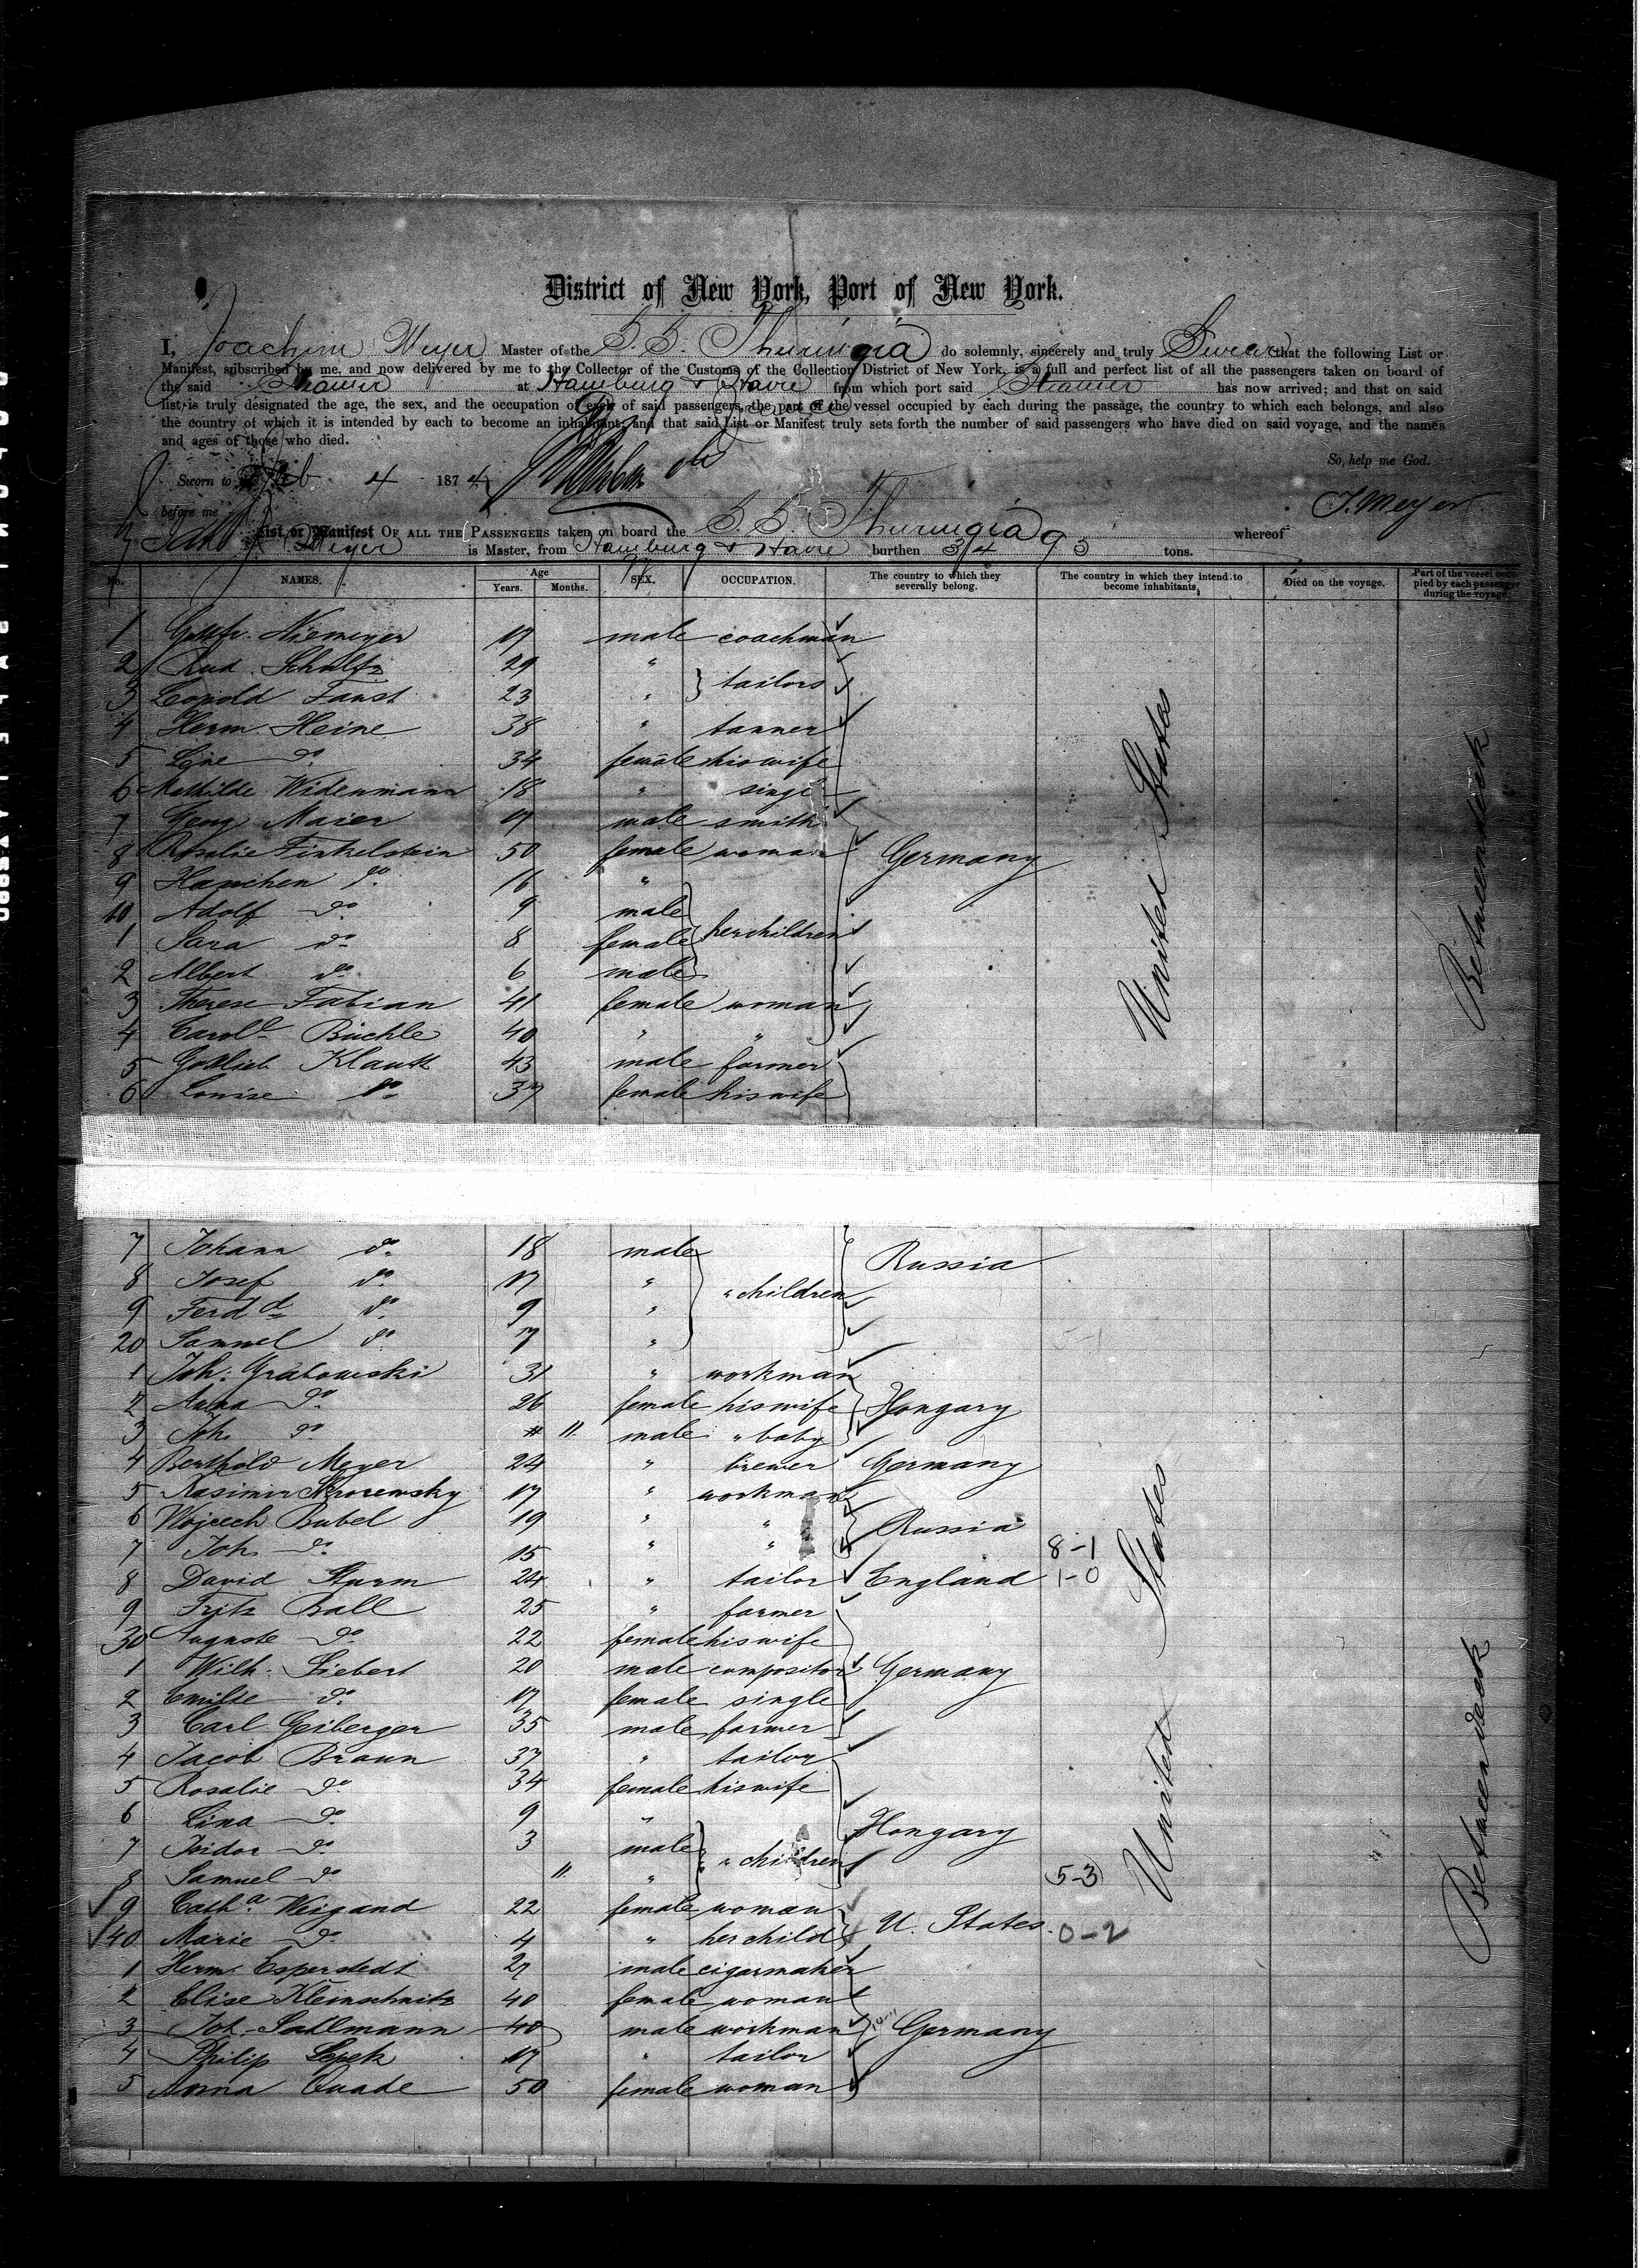 District of New York, Port of New York.
I, Joachim Meyer Master of the S. S. Thuringia do solemnly, sincerely and truly Swear that the following List or
Manifest, subscribed by me, and now delivered by me to the Collector of the Customs of the Collection District of New York, is a full and perfect list of all the passengers taken on board of
the said Steamer at Hamburg & Havre from which port said Steamer has now arrived; and that on said
list is truly designated the age, the sex, and the occupation of each of said passengers, the part of the vessel occupied by each during the passage, the country to which each belongs, and also
the country of which it is intended by each to become an inhabitant; and that said List or Manifest truly sets forth the number of said passengers who have died on said voyage, and the names
and ages of those who died.
So help me God.
Sworn to Feb 4 1874
J. Meyer
before me
List or Manifest OF ALL THE PASSENGERS taken on board the S. S. Thuringia whereof
Meyer is Master, from Hamburg & Havre burthen tons.
No. NAMES. Age Years. Months. SEX. OCCUPATION. The country to which they severally belong. The country in which they intend to become inhabitants. Died on the voyage. Part of the vessel occupied by each passenger during the voyage.
1 Gottfr. Niemeyer 17 male coachman
2 Rud. Schultz 29 "
tailors
3 Leopold Faust 23 "
4 Herm. Heine 38 " tanner
5 Line do 34 female his wife
6 Mathilde Widenmann 18 " singl
7 Georg Maier 17 male smith
8 Rosalie Finkelstein 50 female woman Germany
9 Hanchen do 16 "
10 Adolf do 9 male
1 Sara do 8 female her children
2 Albert do 6 male
3 Therese Fabian 41 female woman
4 Carol. Büchle 40 " "
5 Gottlieb Klautt 43 male farmer
6 Louise do 37 female his wife
United States
Betweendeck
7 Johann do 18 male Russia
8 Josef do 17 "
" children
9 Ferdd do 9 "
20 Samuel do 7 "
1 Joh. Grabowski 31 " workman
2 Anna do 26 female his wife Hongary
3 Joh. do 11 male " baby
4 Berthold Meyer 24 " brewer Germany
5 Kasimir 17 " workman
6 Wojcech Bubel 19 " " Russia
7 Joh. do 15 " " 8-1
8 David Sturm 24 " tailor England 1-0
9 Fritz Ball 25 " farmer
30 Auguste do 22 female his wife
1 Wilh. Siebert 20 male compositor Germany
2 Emilie do 17 female single
3 Carl Geiberger 35 male farmer
4 Jacob Braun 37 " tailor
5 Rosalie do 34 female his wife
6 Lina do 9 " Hongary
7 Isidor do 3 male
" children
8 Samuel do 11 " 5-3
9 Catha Weigand 22 female woman
U. States 0-2
40 Marie do 4 " her child
1 Herm. Esperstedt 27 male cigarmaker
2 Elise Kleinschmitz 40 female woman
3 Joh. Sallmann 40 male workman Germany
4 Philip Lepek 17 " tailor
5 Anna Quade 50 female woman
United States
Betweendeck